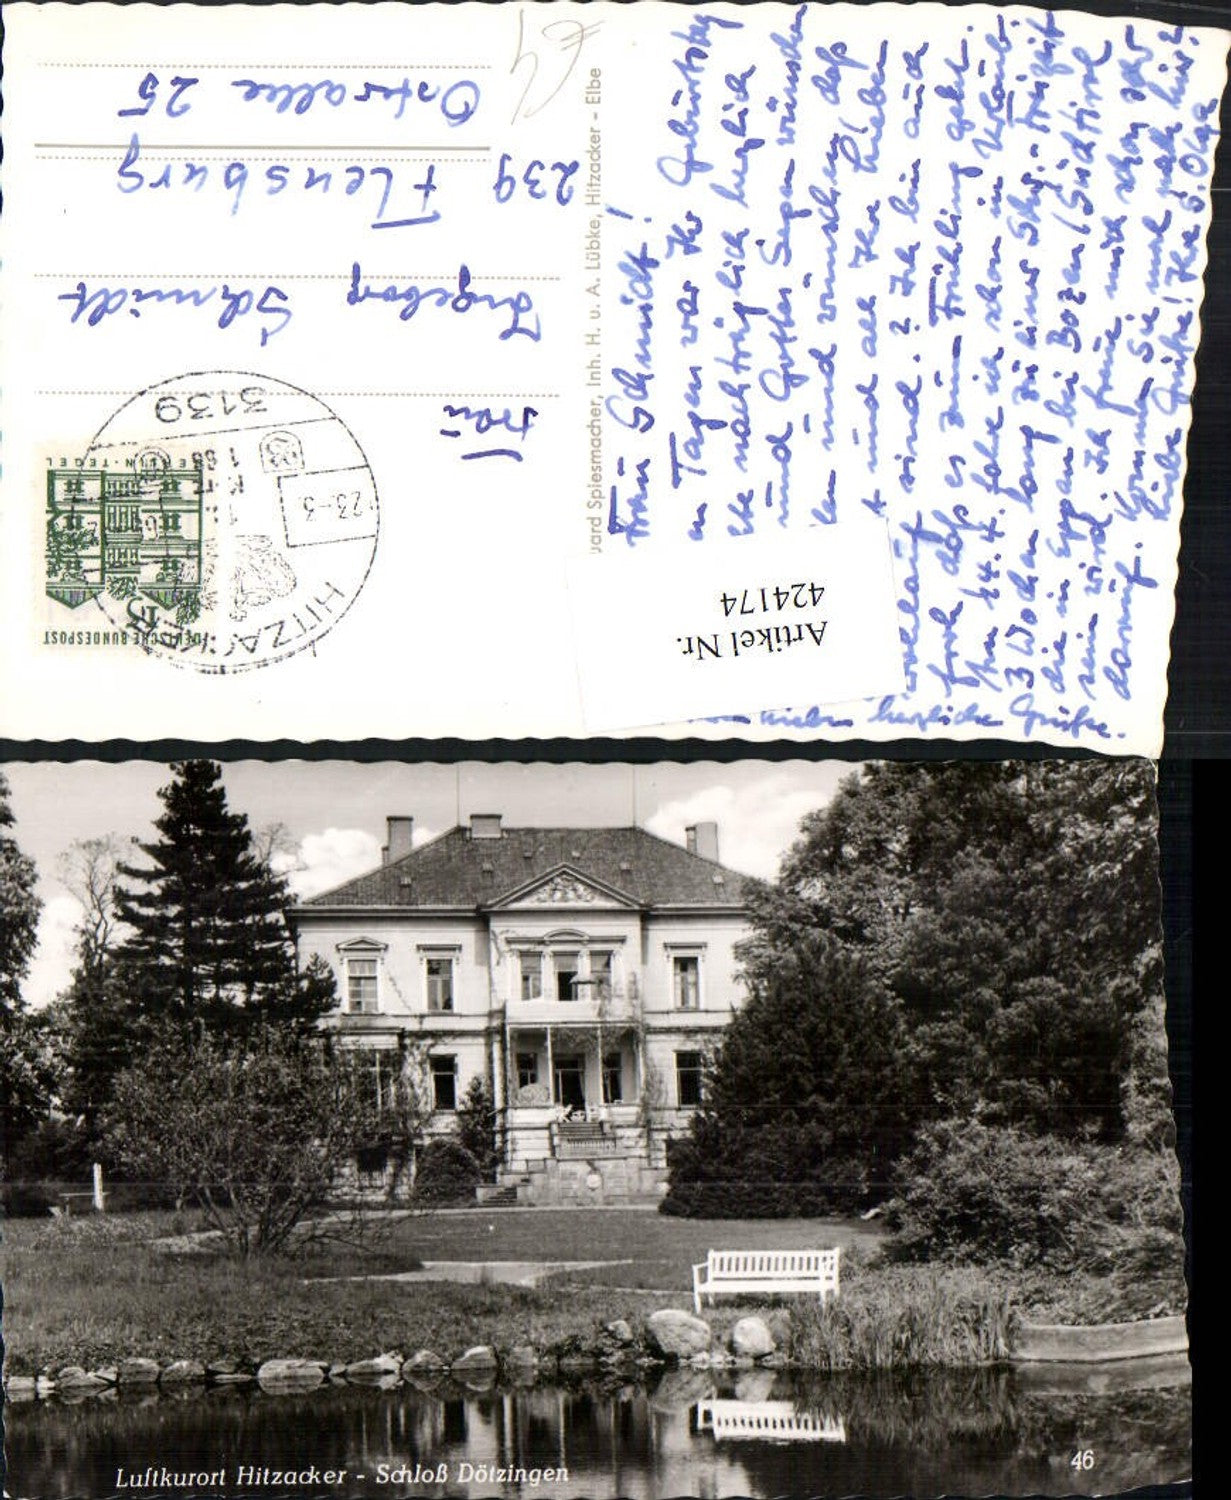 Frau
Ingeborg Schmidt
239 Flensburg
Osterallee 25
€4
DEUTSCHE BUNDESPOST
15
BERLIN-TEGEL
HITZACKER
23.-3.
3139
uard Spiesmacher, Inh. H. u. A. Lübke, Hitzacker - Elbe
Artikel Nr.
424174
Frau Schmidt!
n Tagen war Ihr Geburtstag
nachträglich herzlich
und Gottes Segen wünschen
und wünschen, daß
und all Ihre Lieben
wohlauf sind. ? Ich bin auch
froh, daß es zum Frühling geht.
Am 14.4. fahre ich schon in Urlaub.
3 Wochen lang zu einer
die in Eppan bei Bozen (Südtirol
sein wird. Ich freue mich schon sehr
darauf. Kommen Sie mal nach hier?
Liebe Grüße! Ihre S. Olga
herzliche Grüße.
Luftkurort Hitzacker - Schloß Dötzingen
46